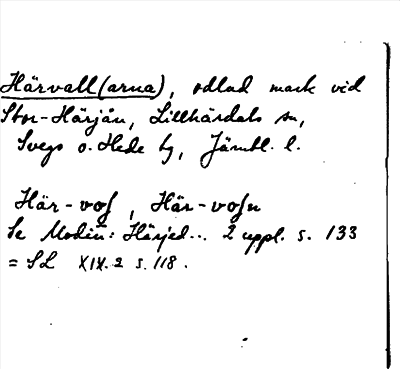 Härvall(arna), odlad mark vid
Stor-Härjån, Lillhärdals sn,
Svegs o. Hede tg, Jämtl. l.
Här-voļ, Här-voļn
Se Modin: Härjed... 2 uppl. s. 133
= SL XIX. 2 s. 118.